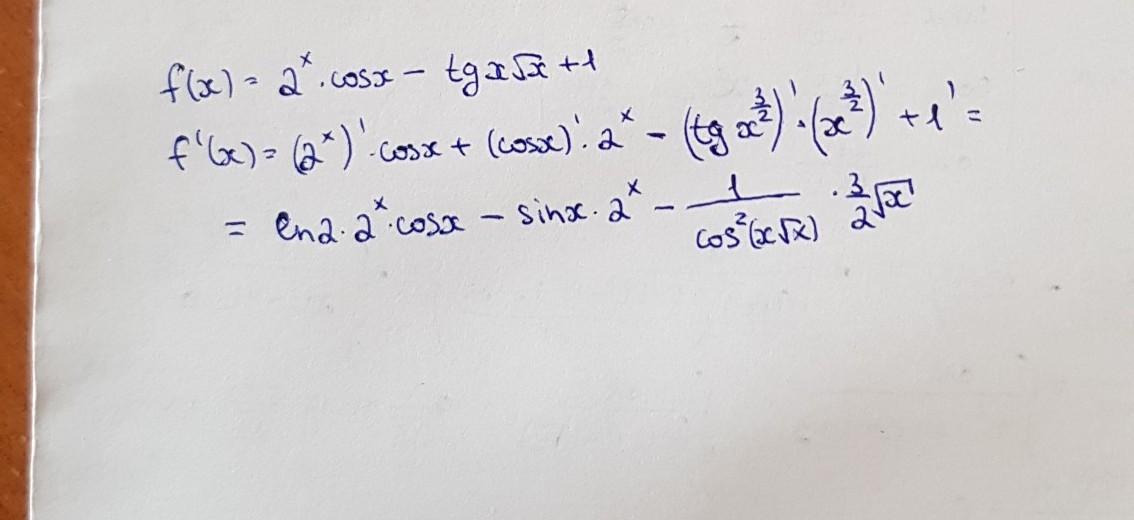 f(x) = 2ˣ · cosx − tg x√x + 1
f'(x) = (2ˣ)' · cosx + (cosx)' · 2ˣ − (tg x^{3/2})' · (x^{3/2})' + 1' =
= ln2 · 2ˣ · cosx − sinx · 2ˣ − 1/cos²(x√x) · 3/2 √x